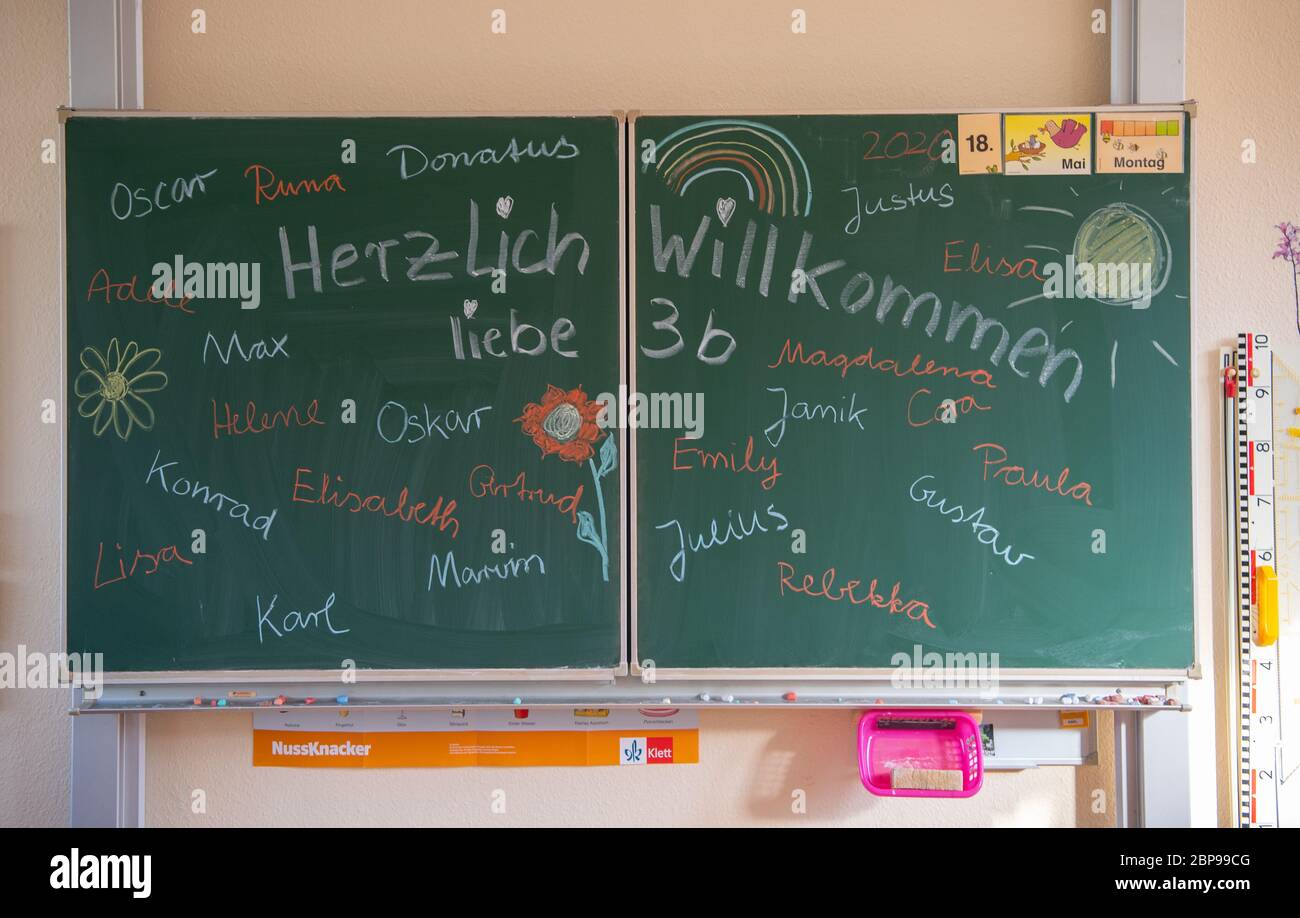 Donatus
Oscar Runa
Herzlich
Adele
liebe
Max
Helene Oskar
Konrad Elisabeth Gertrud
Lissa Marvin
Karl
2020 18. Mai Montag
Justus
Willkommen
Elisa
3b
Magdalena
Janik Cora
Emily Paula
Gustav
Julius
Rebekka
NussKnacker Klett
10
9
8
7
6
4
3
2
1
alamy
Image ID: 2BP99CG
www.alamy.com